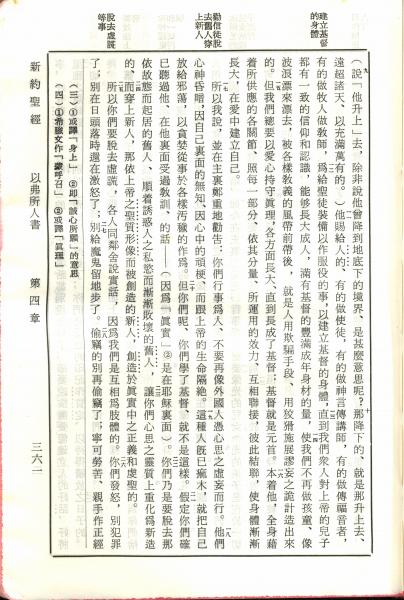 建立基督
的身體
（說『他升上』去，除非說他曾降到地底下的境界、是甚麼意思呢？那降下的、就是那升上去、
遠超諸天、以充滿萬有的。）他賜給人的、有的做使徒，有的做神言傳講師，有的做傳福音者，
有的做牧人做教師，爲給聖徒裝備以作服役的事，以建立基督的身體，直到我們衆人對上帝的兒子
都有一致的信仰和認識，能够長大成人，滿有基督的豐滿成年身材的量，使我們不再做孩童、像
波浪漂來漂去，被各樣教義的風帶前帶後，就是人用欺騙手段、用狡猾施展謬妄之詭計造出來
的。但我們總要以愛心持守眞理，各方面長大、直到長成了基督；基督就是元首。本着他，全身藉
着所供應的各關節、照每一部分、依其分量、所運用的效力、互相聯接，彼此結聯，使身體漸漸
長大，在愛中建立自己。
勸信徒脫
去舊人穿
上新人
所以我說，並在主裏鄭重地勸告：你們行事爲人、不要再像外國人憑心思之虛妄而行。他們
心神昏暗，因自己裏面的無知、因心中的頑梗、而跟上帝的生命隔絶。這種人旣已痲木，就把自己
放給邪蕩，以貪婪從事於各樣汚穢的作爲。但你們呢、你們學了基督、就不是這樣。假定你們確
已聽過他、在他裏面受過教訓的話——（因爲『眞實』②是在耶穌裏面）。你們乃是要脫去那
依故態而起居的舊人、順着誘惑人之私慾而漸漸敗壞的舊人，讓你們心思之靈質上重化爲新造
的，而穿上新人，那依上帝之聖質形像而被創造的新人、創造於眞實中之正義和虔聖的。
脫去虛謊
等事
所以你們要脫去虛謊，各人同鄰舍說實話，因爲我們是互相爲肢體的。你們發怒，別犯罪
了；別在日頭落時還在激怒了；別給魔鬼留地步了。偷竊的別再偷竊了；寧可勞苦、親手作正經
（三）①或譯『身上』 ②卽『誠心所願』的意思
（四）①希臘文作『蒙呼召』 ②或譯『眞理』
新約聖經 以弗所人書 第四章 三六一